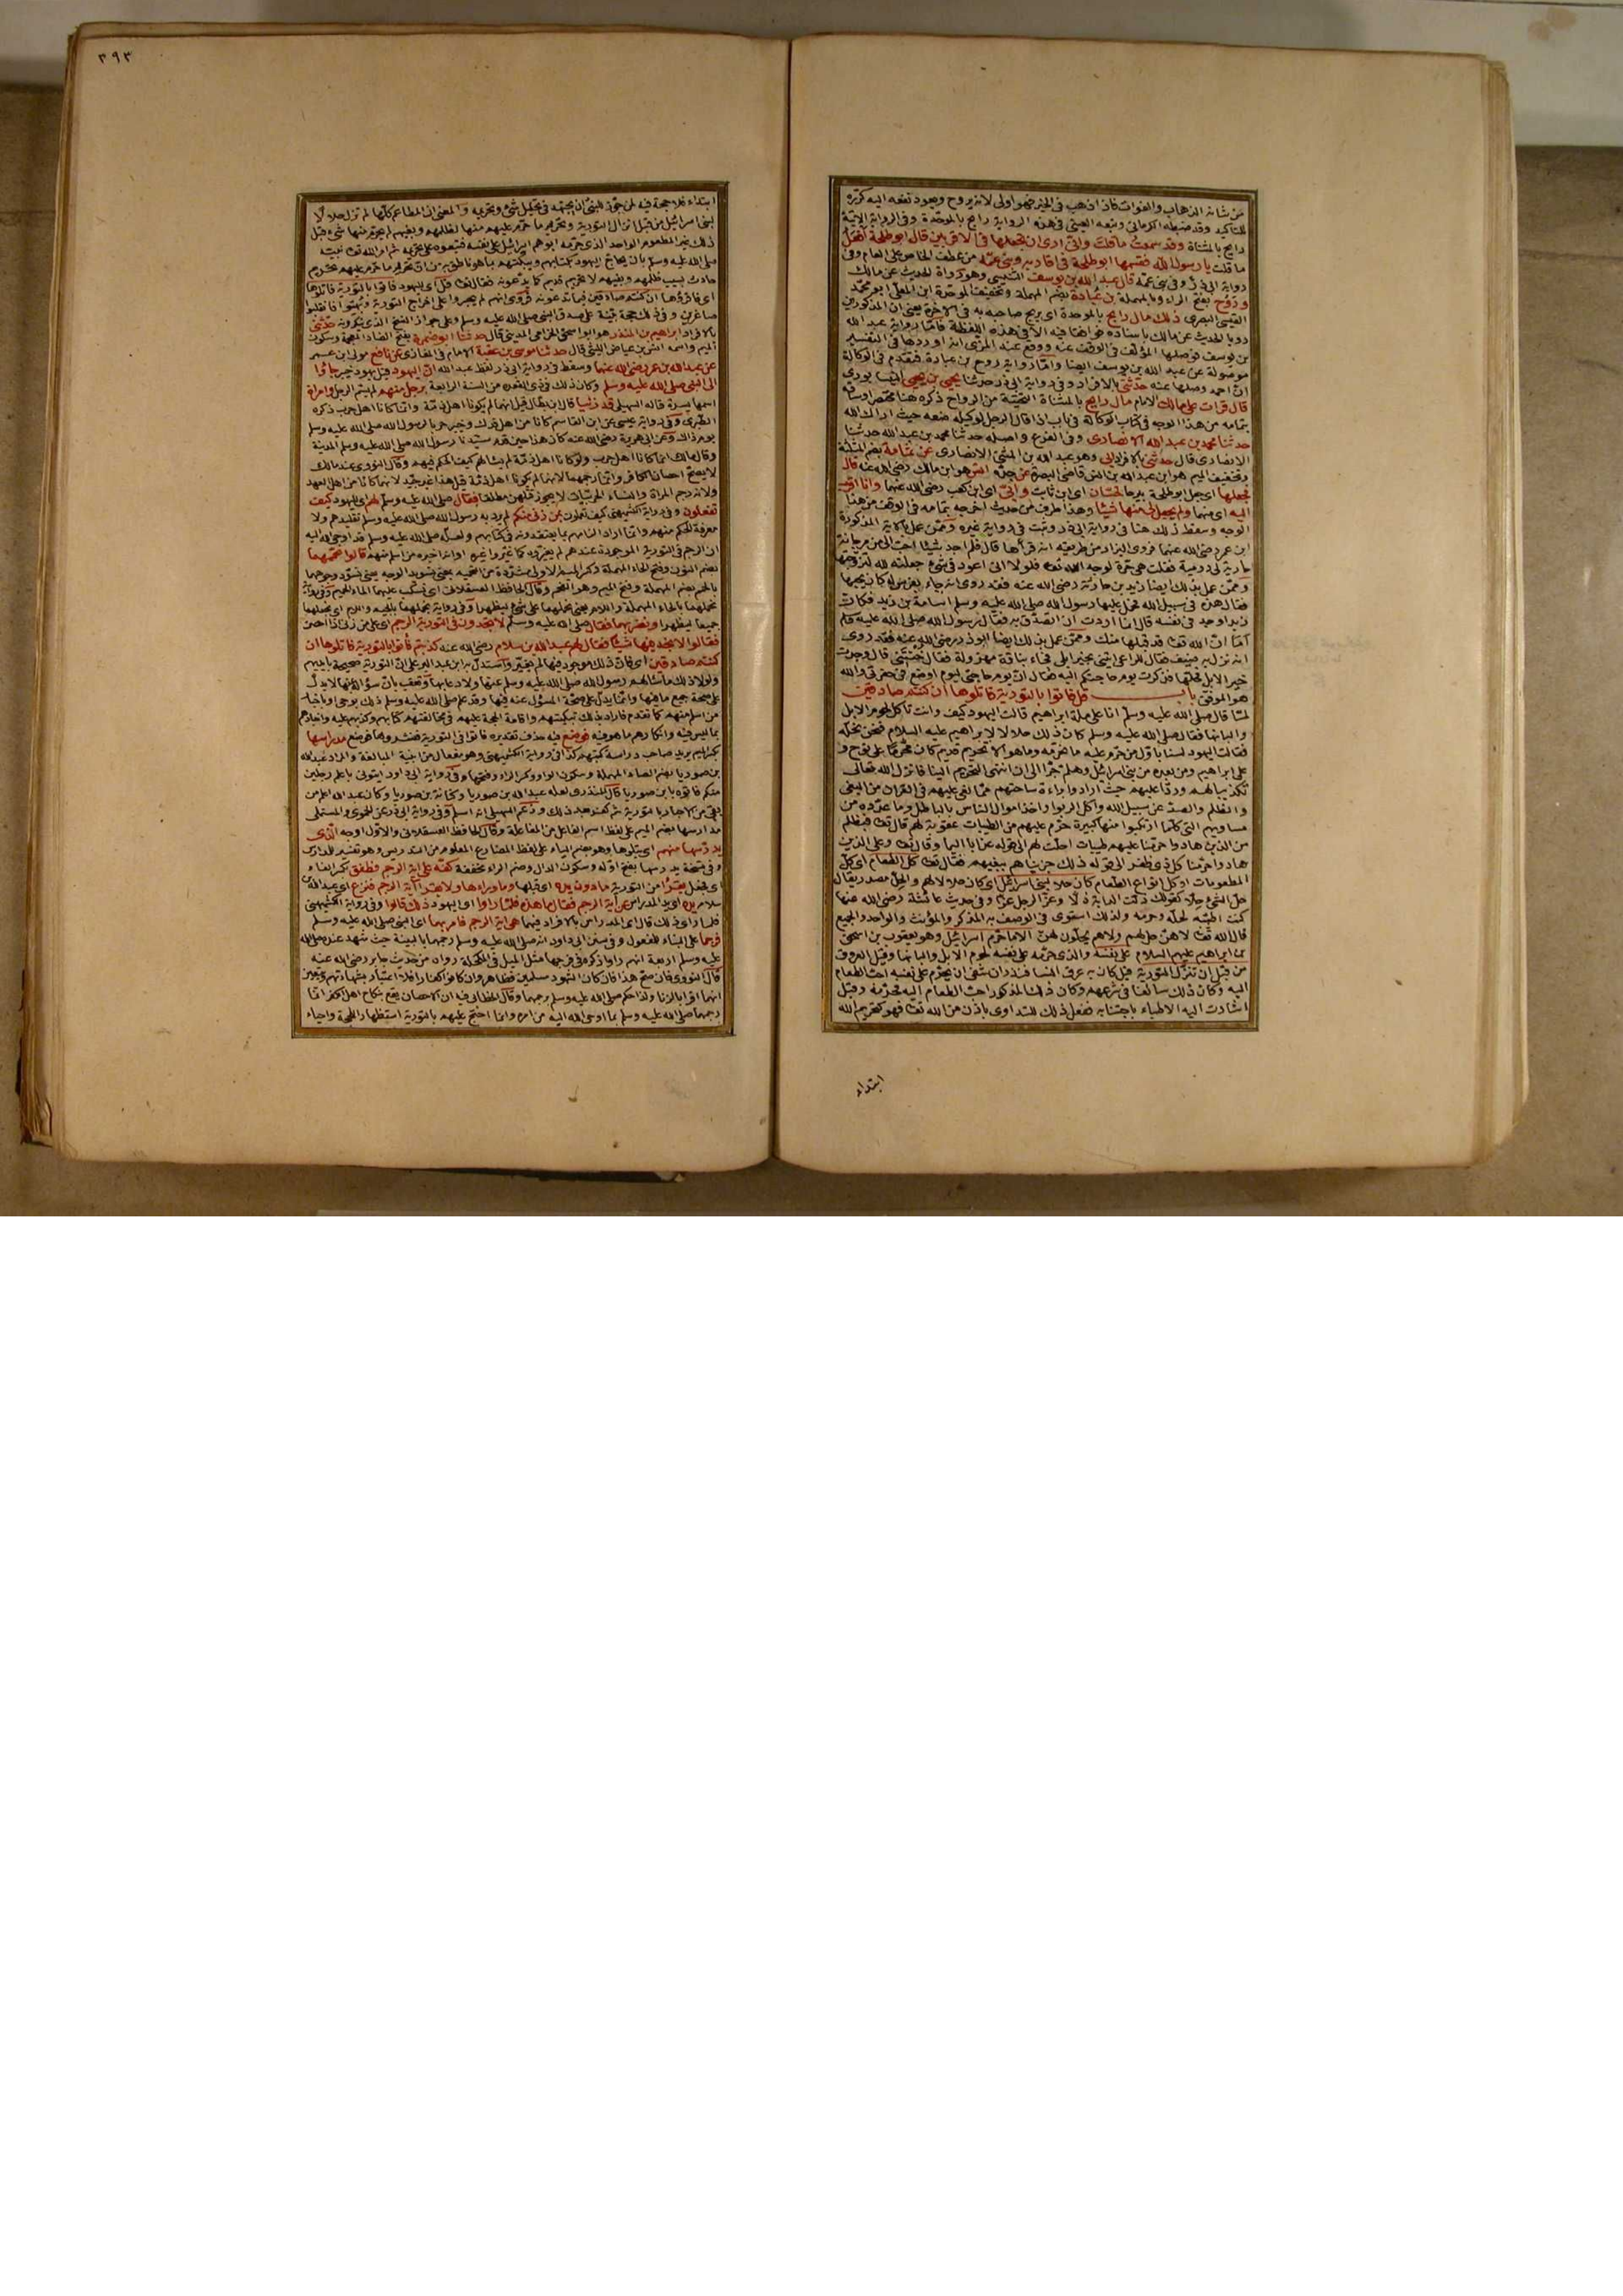 من شانه الذهاب والفوات فاذا ذهب في الخير فهو اولى لانه يروح ويعود نفعه اليه كرّره
للتأكيد وقد ضبطه الكرماني وتبعه العيني في هذه الرواية رابح بالموحدة وفي الرواية الآتية
رايح بالمثناة وقد سمعت ما قلت واني ارى ان تجعلها في الاقربين قال ابو طلحة افعل
ما قلت يا رسول الله فقسمها ابو طلحة في اقاربه وبني عمه من عطف الخاص على العام وفي
رواية ابي ذر وفي بني عمه قال عبد الله بن يوسف التنيسي وهو رواة الحديث عن مالك
وروح بفتح الراء وبالمهملة بن عبادة بضم المهملة وتخفيف الموحدة ابن العلا ابو محمد
القيسي البصري ذلك مال رابح بالموحدة اي يربح صاحبه به في الآخرة يعني ان المذكورين
رويا الحديث عن مالك باسناده فوافقا فيه الا في هذه اللفظة فاما رواية عبد الله
بن يوسف فوصلها المؤلف في الوقف عنه ووقع عند المزي انه اوردها في التفسير
موصولة عن عبد الله بن يوسف ايضا واما رواية روح بن عبادة فتقدم في الوكالة
ان احمد وصلها عنه حدثني بالافراد وفي رواية ابي ذر حدثنا يحيى بن يحيى النيسابوري
قال قرات على مالك الامام مال رايح بالمثناة التحتية من الرواح ذكره هنا مختصرا وساقه
بتمامه من هذا الوجه في كتاب الوكالة في باب اذا قال الرجل لوكيله ضعه حيث اراك الله
حدثنا محمد بن عبد الله الانصاري وفي الفرع واصله حدثنا محمد بن عبد الله حدثنا
الانصاري قال حدثني بالافراد ابي وهو عبد الله بن المثنى الانصاري عن ثمامة بضم المثلثة
وتخفيف الميم هو ابن عبد الله بن انس قاضي البصرة عن جده انس هو ابن مالك رضي الله عنه قال
فجعلها اي جعل ابو طلحة بيرحا لحسان اي ابن ثابت وابيّ اي ابن كعب رضي الله عنهما وانا اقرب
اليه اي منهما ولم يجعل لي منها شيئا وهذا طرف من حديث اخرجه بتمامه في الوقف من هذا
الوجه وسقط ذلك هنا في رواية ابي ذر وثبت في رواية غيره وممن عمل بالآية المذكورة
ابن عمر رضي الله عنهما فروى البزار من طريقه انه قرأها قال فلم اجد شيئا احب الي من مرجانة
جارية لي رومية فقلت هي حرة لوجه الله تعا فلولا اني اعود في شيء جعلته لله لتزوجتها
وممن عمل بذلك ايضا زيد بن حارثة رضي الله عنه فقد روي انه جاء بفرس له كان يحبها
فقال هذه في سبيل الله فحمل عليها رسول الله صلى الله عليه وسلم اسامة بن زيد فكان
زيد اوجد في نفسه قال انما اردت ان اتصدق به فقال رسول الله صلى الله عليه وسلم
اما ان الله تعا قد قبلها منك وممن عمل بذلك ايضا ابوذر رضي الله عنه فقد روي
انه نزل به ضيف فقال للراعي ائتني بخير ابلي فجاء بناقة مهزولة فقال خنتني قال وجدت
خير الابل فحلها فذكرت يوم حاجتكم اليه فقال ان يوم حاجتي ليوم اوضع في حفرتي والله
هو الموفق باب قل فاتوا بالتورية فاتلوها ان كنتم صادقين
لما قال صلى الله عليه وسلم انا على ملة ابراهيم قالت اليهود كيف وانت تأكل لحوم الابل
والبانها فقال صلى الله عليه وسلم كان ذلك حلالا لابراهيم عليه السلام فنحن نحله
فقالت اليهود لسنا باول من حرم عليه ما نحرمه وما هو الا تحريم قديم كان محرّما على نوح و
على ابراهيم ومن بعده من بني اسرائيل وهلم جرّا الى ان انتهى التحريم الينا فانزل الله تعالى
تكذيبا لهم وردّا عليهم حيث ارادوا براءة ساحتهم مما نعى عليهم في القران من البغي
والظلم والصدّ عن سبيل الله واكل الربوا واخذ اموال الناس بالباطل وما عدّده من
مساويهم التي كلما ارتكبوا منها كبيرة حرّم عليهم من الطيبات عقوبة لهم قال تعا فبظلم
من الذين هادوا حرمنا عليهم طيبات احلت لهم الى قوله عذابا اليما وقال تعا وعلى الذين
هادوا حرمنا كل ذي ظفر الى قوله ذلك جزيناهم ببغيهم فقال تعا كل الطعام اي كل
المطعومات او كل انواع الطعام كان حلا لبني اسرائيل اي كان حلالا لهم والحل مصدر يقال
حل الشيء حلا كقولك ذلت الدابة ذلا وعزّ الرجل عزا وفي حديث عائشة رضي الله عنها
كنت اطيبه لحله وحرمه ولذلك استوى في الوصف به المذكر والمؤنث والواحد والجمع
قال الله تعا لا هن حل لهم ولا هم يحلون لهن الا ما حرم اسرائيل وهو يعقوب بن اسحق
بن ابراهيم عليهم السلام على نفسه والذي حرّمه على نفسه لحوم الابل والبانها وقيل العروق
من قبل ان تنزل التورية قيل كان به عرق النسا فنذر ان شفي ان يحرّم على نفسه احب الطعام
اليه وكان ذلك سائغا في شرعهم وكان ذلك المذكور احب الطعام اليه فحرّمه وقيل
اشارت اليه الاطباء باجتنابه ففعل ذلك للتداوي باذن من الله تعا فهو كتحريم الله
ابتداء
٣٩٣
ابتداء فلا حجة فيه لمن جوّز للنبي ان يجتهد في تحليل شيء وتحريمه والمعنى ان المطاعم كلها لم تزل حلالا
لبني اسرائيل من قبل انزال التورية وتحريم ما حرّم عليهم منها لظلمهم وبغيهم لم يحرم منها شيء قبل
ذلك غير المطعوم الواحد الذي حرّمه ابوهم اسرائيل على نفسه فتبعوه على تحريمه ثم امر الله تعا نبيه
صلى الله عليه وسلم بان يحاج اليهود بكتابهم ويبكتهم بما هو ناطق به من ان تحريم ما حرّم عليهم تحريم
حادث بسبب ظلمهم وبغيهم لا تحريم قديم كما يدّعونه فقال تعا قل اي لليهود فاتوا بالتورية فاتلوها
اي فاقرؤها ان كنتم صادقين فيما تدعونه فروي انهم لم يجسروا على اخراج التورية وبهتوا فانقلبوا
صاغرين وفي ذلك حجة بينة على صدق النبي صلى الله عليه وسلم وعلى جواز النسخ الذي ينكرونه حدثني
بالافراد ابراهيم بن المنذر هو ابو اسحق الحزامي المديني قال حدثنا ابو ضمرة بفتح الضاد المعجمة وسكون
الميم واسمه انس بن عياض الليثي قال حدثنا موسى بن عقبة الامام في المغازي عن نافع مولى ابن عمر
عن عبد الله بن عمر رضي الله عنهما وسقط في رواية ابي ذر لفظ عبد الله ان اليهود قيل يهود خيبر جاؤا
الى النبي صلى الله عليه وسلم وكان ذلك في ذي القعدة من السنة الرابعة برجل منهم لم يسم الرجل وامراة
اسمها بسرة قاله السهيلي قد زنيا قال ابن بطال قيل انهما لم يكونا اهل ذمة وانما كانا اهل حرب ذكره
الطبري وفي رواية عيسى عن ابن القاسم كانا من اهل فدك وخيبر حربا لرسول الله صلى الله عليه وسلم
يوم ذاك وعن ابي هريرة رضي الله عنه كان هذا حين قدم سيدنا رسول الله صلى الله عليه وسلم المدينة
وقال مالك انما كانا اهل حرب ولو كانا اهل ذمة لم يسألهم كيف الحكم فيهم وقال النووي عند مالك
لا يصح احصان الكافر وانما رجمهما لانهما لم يكونا اهل ذمة قيل هذا غير جيد لانهما كانا من اهل العهد
ولانه رجم المراة والنساء الحربيات لا يجوز قتلهن مطلقا فقال صلى الله عليه وسلم لهم اي لليهود كيف
تفعلون وفي رواية الكشميهني كيف تعملون بمن زنى منكم لم يرد به رسول الله صلى الله عليه وسلم تقليدهم ولا
معرفة الحكم منهم وانما اراد الزامهم بما يعتقدونه في كتابهم ولعله صلى الله عليه وسلم قد اوحي اليه
ان الرجم في التورية الموجودة عندهم لم يغيروه كما غيروا غيره او انه اخبره من اسلم منهم قالوا نحممهما
بضم النون وفتح الحاء المهملة وكسر الميم الاولى مشددة من التحميم يعني بتسويد الوجه يعني نسوّد وجوههما
بالحمم بضم المهملة وفتح الميم وهو الفحم وقال الحافظ العسقلاني اي نسكب عليهما الماء الحميم وفي رواية
نحملهما بالحاء المهملة واللام يعني نحملهما على شيء ليظهرا وفي رواية نجملهما بالجيم واللام اي نجعلهما
جميعا ليظهرا ونضربهما فقال صلى الله عليه وسلم لا تجدون في التورية الرجم اي على من زنى اذا احصن
فقالوا لا نجد فيها شيئا فقال لهم عبد الله بن سلام رضي الله عنه كذبتم فاتوا بالتورية فاتلوها ان
كنتم صادقين اي فان ذلك موجود فيها لم يغير واستدل به ابن عبد البر على ان التورية صحيحة بايديهم
ولولا ذلك ما سألهم رسول الله صلى الله عليه وسلم عنها ولا دعا بها وتعقب بان سؤاله عنها لا يدل
على صحة جميع ما فيها وانما يدل على صحة المسؤل عنه فيها وقد علم صلى الله عليه وسلم ذلك بوحي او باخبار
من اسلم منهم كما تقدم فاراد بذلك تبكيتهم واقامة الحجة عليهم في مخالفتهم كتابهم وكذبهم عليه واخبارهم
بما ليس فيه وانكارهم ما هو فيه فوضع فيه حذف تقديره فاتوا في التورية فنشروها فوضع مدراسها
بكسر الميم يريد صاحب دراسة كتبهم كذا في رواية الكشميهني وهو مفعال من ابنية المبالغة والمراد عبد الله
بن صوريا بضم الصاد المهملة وسكون الواو وكسر الراء وفتحها وفي رواية ابي داود ايتوني باعلم رجلين
منكم فاتوه بابن صوريا قال المنذري لعله عبد الله بن صوريا وكنانة بن صوريا وكان عبد الله اعلم من
بقي من الاحبار بالتورية ثم كفر بعد ذلك وزعم السهيلي انه اسلم وفي رواية ابي ذر عن الحموي والمستملي
مدارسها بضم الميم على لفظ اسم الفاعل من المفاعلة وقال الحافظ العسقلاني والاول اوجه الذي
يدرّسها منهم اي يتلوها وهو بضم الياء على لفظ المضارع المعلوم من التدريس وهو تفسير للمدارس
وفي نسخة يدرسها بفتح اوله وسكون الدال وضم الراء مخففة كفّه على آية الرجم فطفق بكسر الفاء
اي فجعل يقرأ من التورية ما دون يده اي قبلها وما وراءها ولا يقرأ آية الرجم فنزع اي عبد الله بن
سلام يده اي يد المدراس عن آية الرجم فقال ما هذه فلما راوا اي اليهود ذلك قالوا وفي رواية الكشميهني
فلما راى ذلك قال اي المدراس بالافراد فيهما هي آية الرجم فامر بهما اي النبي صلى الله عليه وسلم
فرجما على البناء للمفعول وفي سنن ابي داود انه صلى الله عليه وسلم رجمهما بالبينة حيث شهد عنده صلى الله
عليه وسلم اربعة انهم راوا ذكره في فرجها مثل الميل في المكحلة رواه من حديث جابر رضي الله عنه
قال النووي فان صح هذا فان كان الشهود مسلمين فظاهر وان كانوا كفارا فلا اعتبار بشهادتهم ويتعين
انهما اقرا بالزنا ولذا حكم صلى الله عليه وسلم برجمهما وقال الخطابي فيه ان الاحصان يقع بنكاح اهل الكفر انما
رجمهما صلى الله عليه وسلم بما اوحى الله اليه من امره وانما احتج عليهم بالتورية استظهارا للحجة واحياء